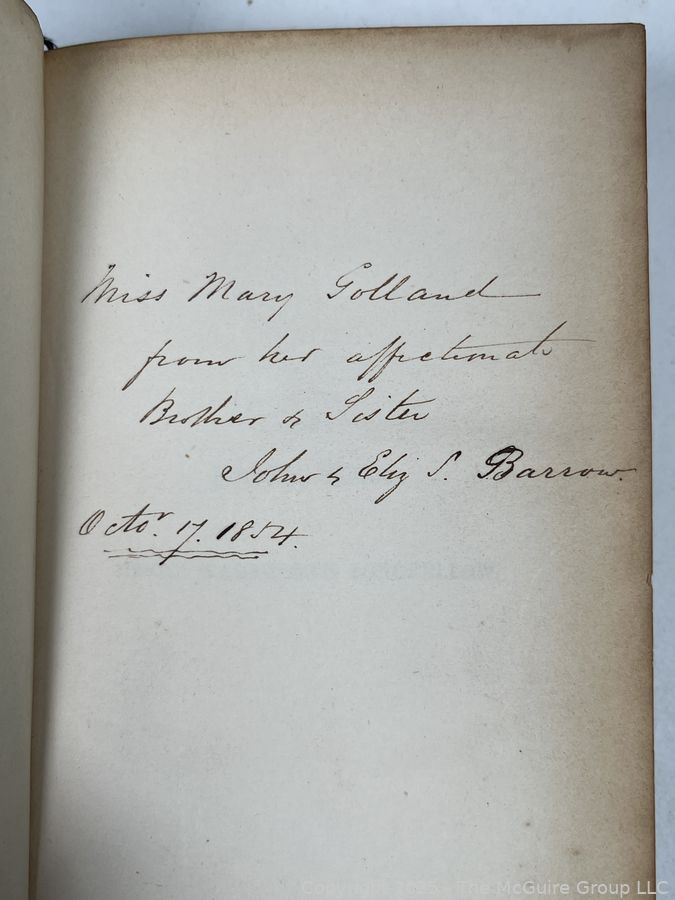 Miss Mary Golland
from her affectionate
Brother & Sister
John & Eliz S. Barrow.
Octor. 17. 1854.
Copyright 2025 - The McGuire Group LLC